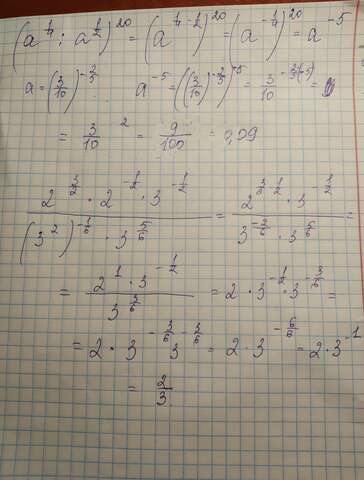 (a^{1/4} : a^{1/2})^{20} = (a^{1/4 - 1/2})^{20} = (a^{-1/4})^{20} = a^{-5}
a = (3/10)^{-2/5} a^{-5} = ((3/10)^{-2/5})^{-5} = 3/10^{-2/5(-5)} =
= 3/10^{2} = 9/100 = 0,09
(2^{3/2} · 2^{-1/2} · 3^{-1/2}) / ((3^{2})^{-1/6} · 3^{5/6}) = (2^{3/2 - 1/2} · 3^{-1/2}) / (3^{-2/6} · 3^{5/6}) =
= (2^{1} · 3^{-1/2}) / 3^{3/6} = 2 · 3^{-1/2} · 3^{-3/6} =
= 2 · 3^{-3/6} 3^{-3/6} = 2 · 3^{-6/6} = 2 · 3^{-1}
= 2/3